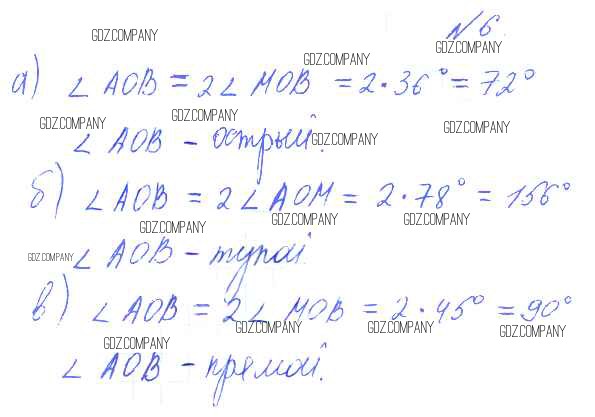 GDZ.COMPANY
N 6.
GDZ.COMPANY
а) ∠ AOB = 2∠ MOB = 2·36° = 72°
GDZ.COMPANY GDZ.COMPANY GDZ.COMPANY
∠ AOB - острый. GDZ.COMPANY
б) ∠ AOB = 2∠ AOM = 2·78° = 156°
GDZ.COMPANY GDZ.COMPANY GDZ.COMPANY
GDZ.COMPANY ∠ AOB - тупой.
в) ∠ AOB = 2∠ MOB = 2·45° = 90°
GDZ.COMPANY GDZ.COMPANY GDZ.COMPANY
GDZ.COMPANY
∠ AOB - прямой.